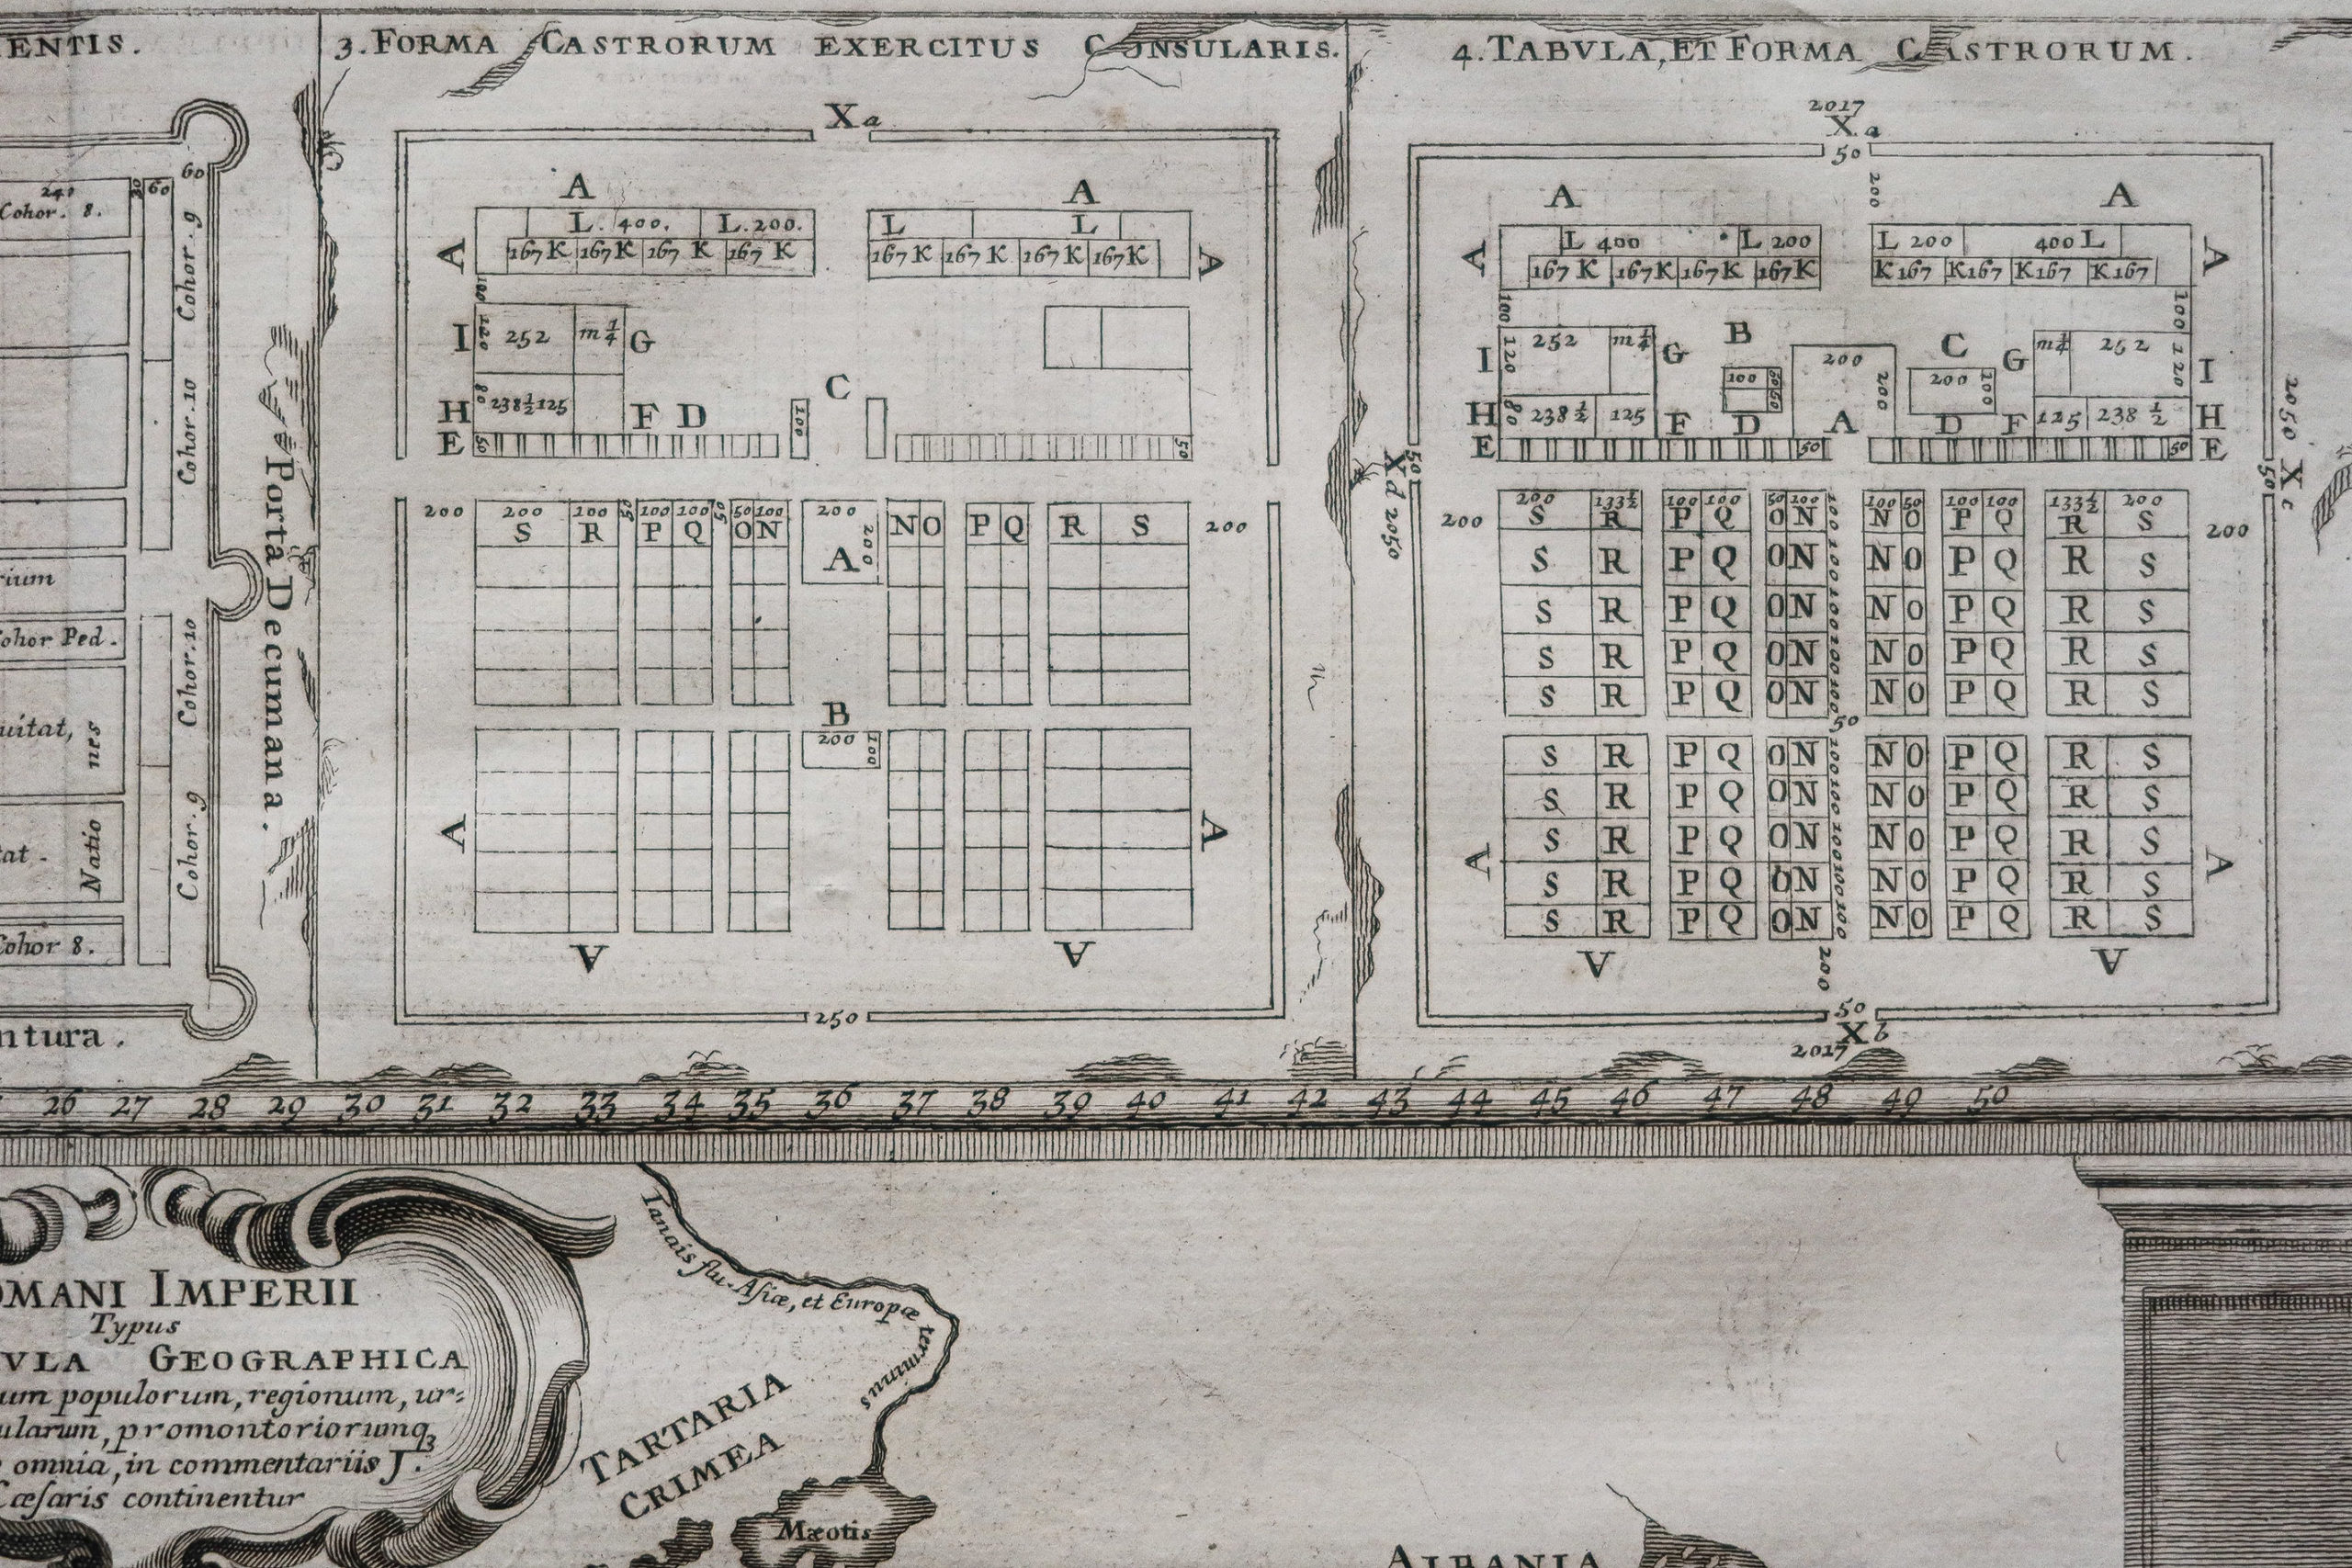 ENTIS.
3. FORMA CASTRORUM EXERCITUS CONSULARIS.
4. TABVLA, ET FORMA CASTRORUM.
240
Cohor. 8.
30
60
60
Cohor. 9
Cohor. 10
rium
Cohor Ped.
Cohor. 10
uitat,
nes
tat.
Natio
Cohor. 9
Cohor 8.
ntura.
Porta Decumana.
X a
A A
L. 400. L. 200. L L
A 167 K 167 K 167 K 167 K 167 K 167 K 167 K 167 K A
100
I 120 252 m 1/4 G
C
H 80 238 1/2 125 F D 100
E 50 50
200 200 100 50 100 100 50 50 100 200 200
S R P Q O N A 200 N O P Q R S
B
200 100
A A
A A
250
2017
X a
50
200
A A
L 400 L 200 L 200 400 L
A 167 K 167 K 167 K 167 K K 167 K 167 K 167 K 167 A
100 100
I 120 252 m 1/4 G B 200 C G m 1/4 252 120 I
100 50 50 200 200 100
H 80 238 1/2 125 F D A D F 125 238 1/2 H
E 50 50 E
X d 2050 50
2050 X c 50
200 200 133 1/2 100 100 50 100 100 100 50 100 100 133 1/2 200 200
S R P Q O N N O P Q R S
S R P Q O N N O P Q R S
S R P Q O N N O P Q R S
S R P Q O N N O P Q R S
S R P Q O N N O P Q R S
50
S R P Q O N N O P Q R S
S R P Q O N N O P Q R S
S R P Q O N N O P Q R S
S R P Q O N N O P Q R S
S R P Q O N N O P Q R S
A A
A A
200
50
X b
2017
26 27 28 29 30 31 32 33 34 35 36 37 38 39 40 41 42 43 44 45 46 47 48 49 50
OMANI IMPERII
Typus
VLA GEOGRAPHICA
um populorum, regionum, ur-
ularum, promontoriorumq3
omnia, in commentariis J.
Cæsaris continentur
Tanais flu. Asiæ, et Europæ terminus
TARTARIA
CRIMEA
Mæotis
ALBANIA